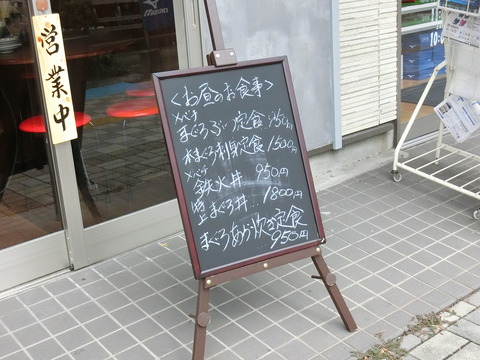 営業中
MIZUNO
<お昼のお食事>
メバチ
まぐろぶつ定食 950円
本まぐろ刺身定食 1500円
メバチ
鉄火丼 950円
特上まぐろ丼 1800円
まぐろあら炊き定食
950円